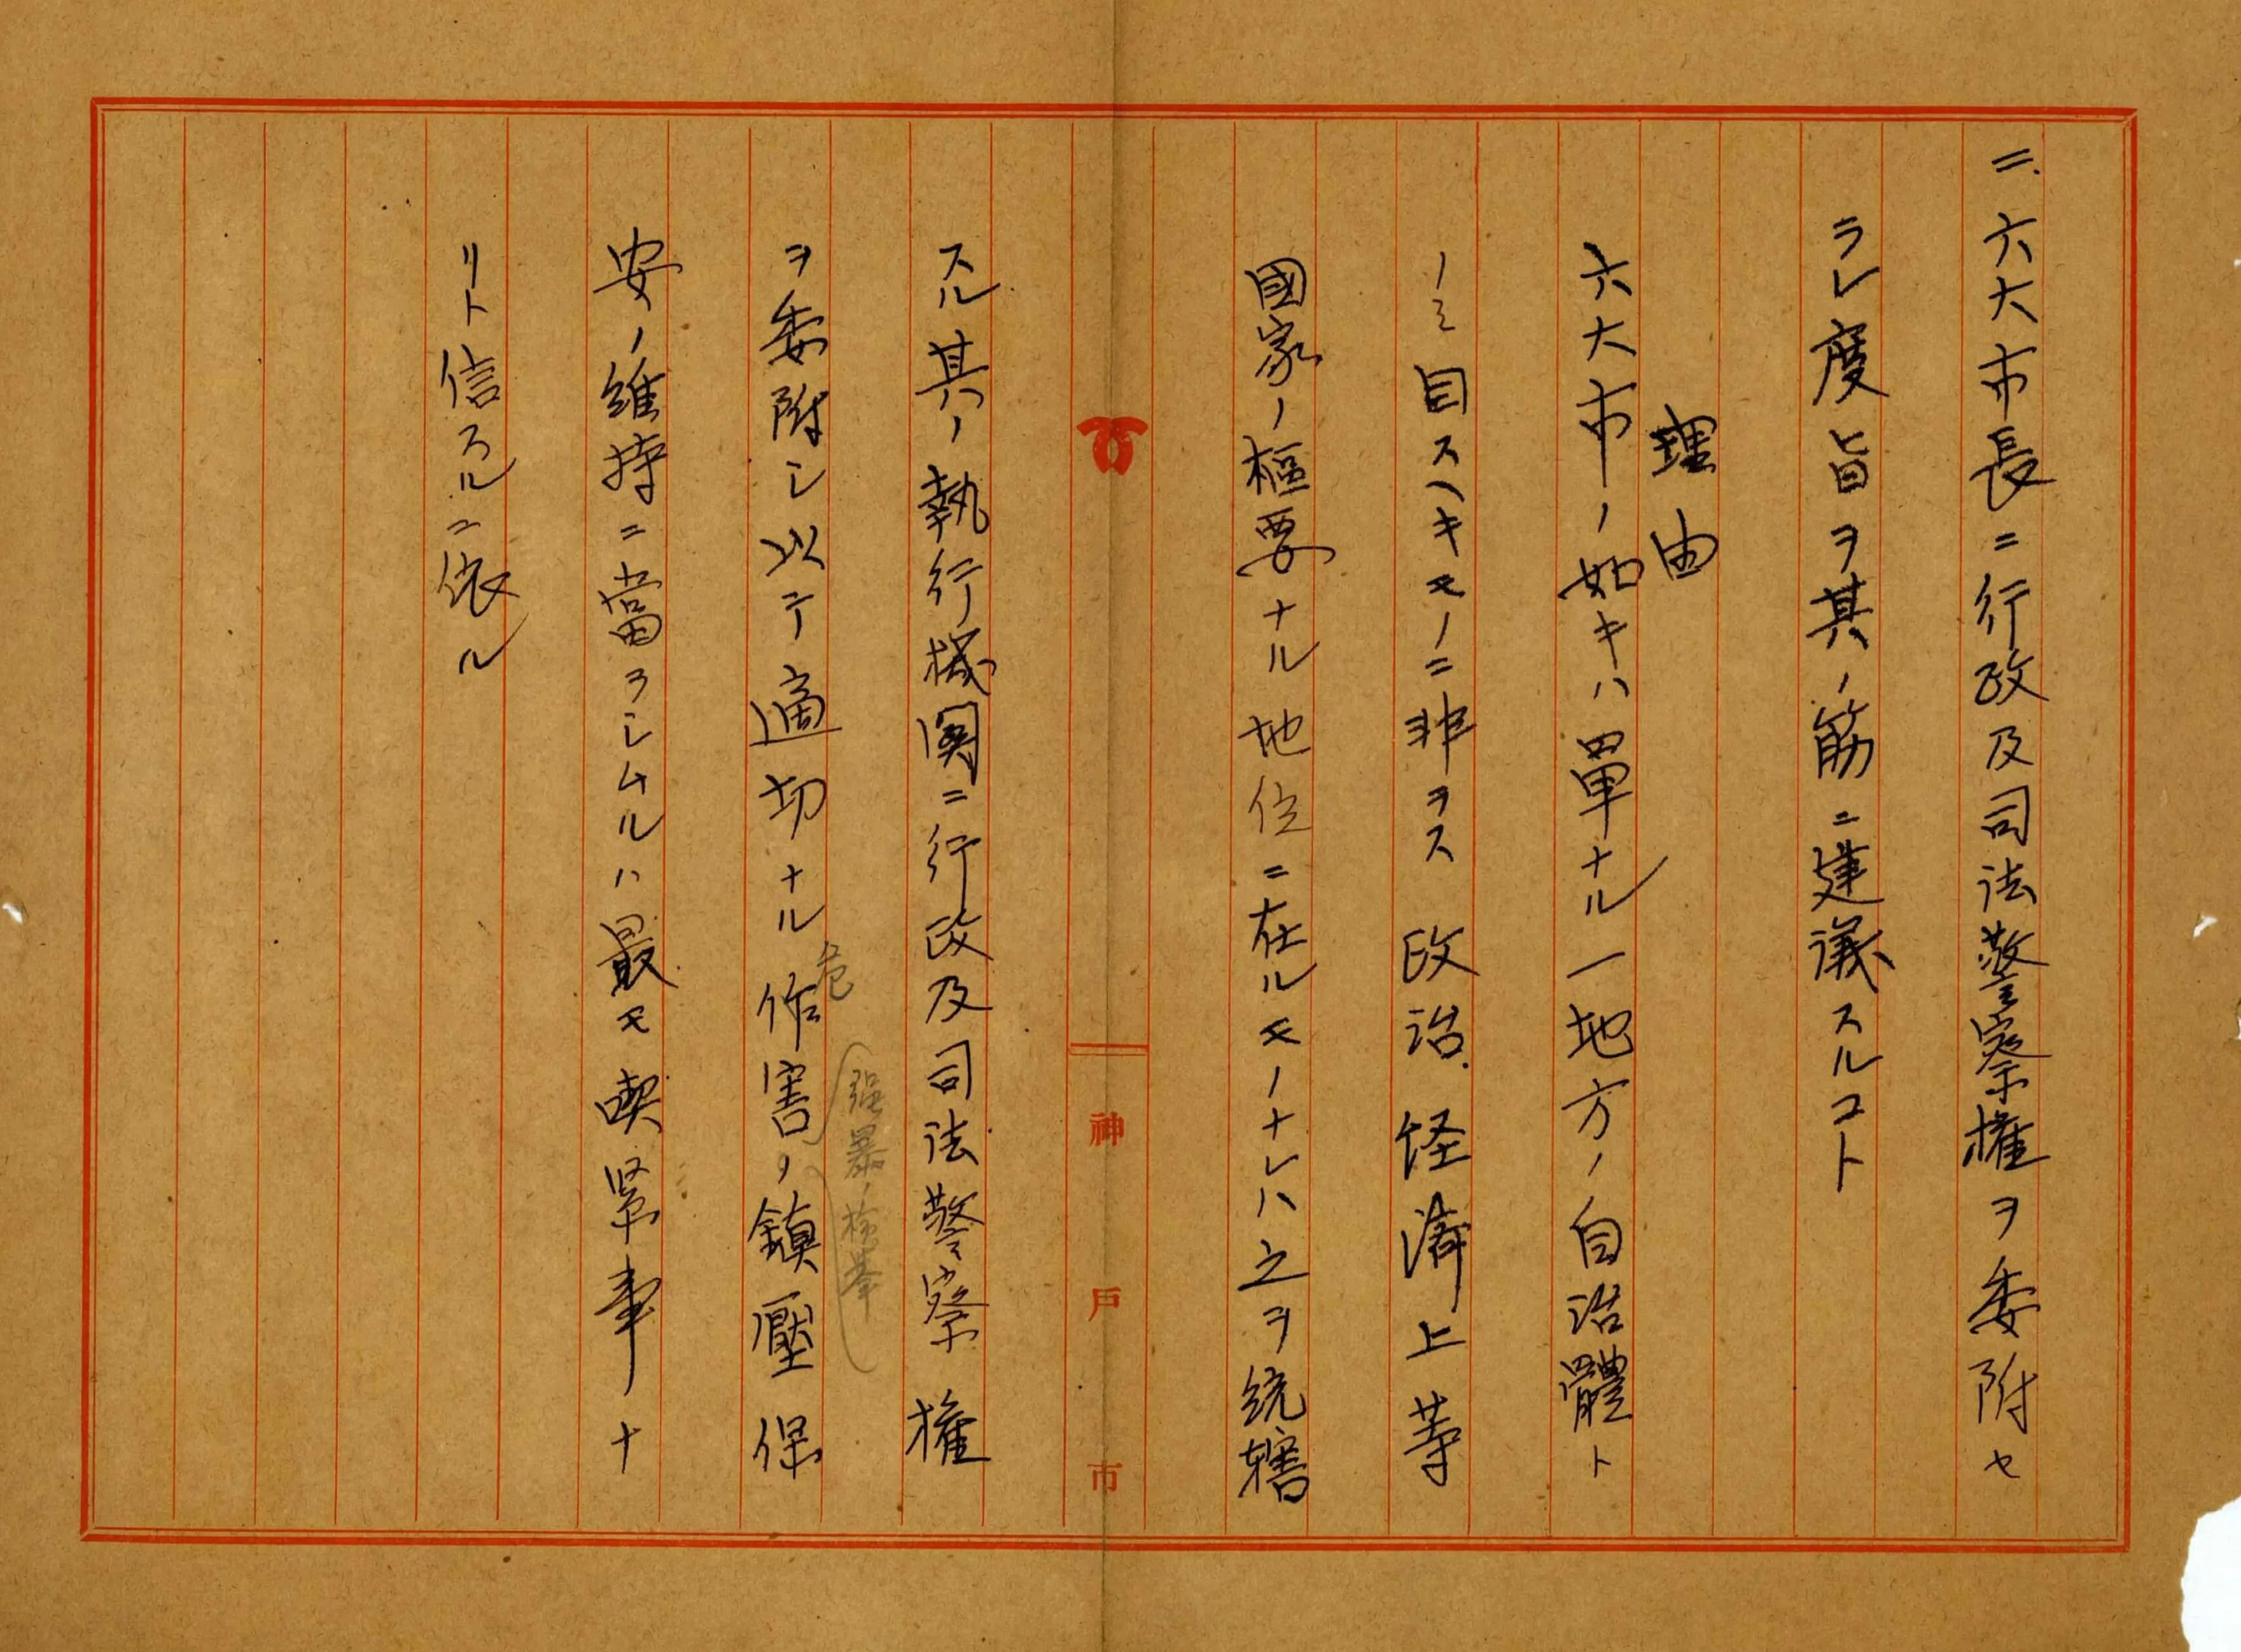 二、六大市長ニ行政及司法警察權ヲ委附セ
ラレ度旨ヲ其ノ筋ニ建議スルコト
理由
六大市ノ如キハ單ナル一地方ノ自治體ト
ノミ目スヘキモノニ非ラス政治、怪濟上等
國家ノ樞要ナル地位ニ在ルモノナレハ之ヲ統轄
スル其ノ執行機関ニ行政及司法警察權
ヲ委附シ以テ適切ナル作害ノ鎮壓保
危
强暴ノ檢擧
安ノ維持ニ當ラシムルハ最モ喫緊事ナ
リト信スルニ依ル
神戸市